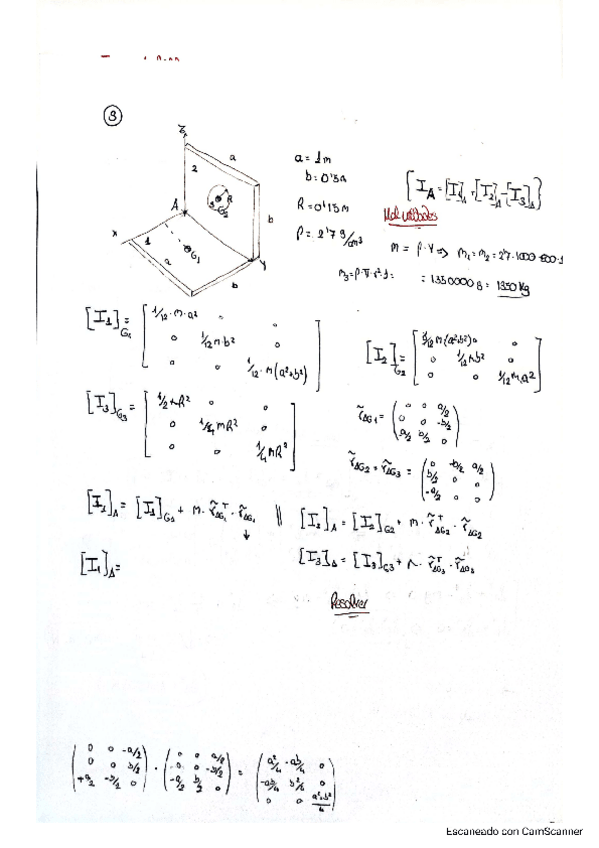 3
Z
a
2
R
G2
A
b
x
1
G1
a
b
y
a = 1m
b = 0'5m
R = 0'15m
[I_A = [I1]_A + [I2]_A - [I3]_A]
m = ρ·V => m1 = m2 =
1350 kg
[I1]_G1 = [ 1/12·m·a² 0 0
0 1/12 m·b² 0
0 0 1/12·m(a²+b²) ]
[I2]_G2 = [ 1/12 m(a²+b²) 0 0
0 1/12 m b² 0
0 0 1/12 m a² ]
[I3]_G3 = [ 1/2 m R² 0 0
0 1/4 m R² 0
0 0 1/4 m R² ]
r̃_AG1 = ( 0 0 a/2
0 0 -b/2
a/2 b/2 0 )
r̃_AG2 = r̃_AG3 = ( 0 -b/2 a/2
b/2 0 0
-a/2 0 0 )
[I1]_A = [I1]_G1 + m·r̃ᵀ_AG1·r̃_AG1 || [I2]_A = [I2]_G2 + m·r̃ᵀ_AG2·r̃_AG2
[I1]_A =
[I3]_A = [I3]_G3 + m·r̃ᵀ_AG3·r̃_AG3
Resolver
( 0 0 -a/2
0 0 b/2
+a/2 -b/2 0 ) · ( 0 0 a/2
0 0 -b/2
-a/2 b/2 0 ) = ( a²/4 -ab/4 0
-ab/4 b²/4 0
0 0 a²+b²/4 )
Escaneado con CamScanner